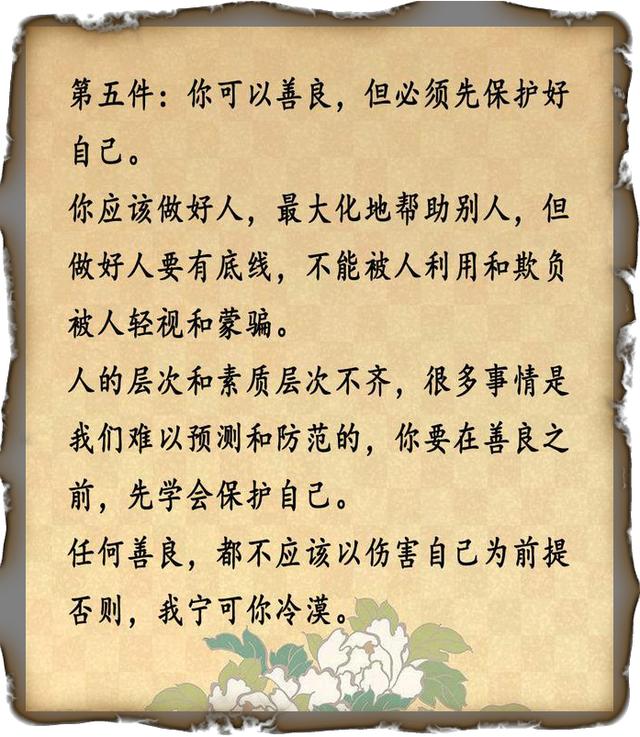 第五件：你可以善良，但必须先保护好
自己。
你应该做好人，最大化地帮助别人，但
做好人要有底线，不能被人利用和欺负
被人轻视和蒙骗。
人的层次和素质层次不齐，很多事情是
我们难以预测和防范的，你要在善良之
前，先学会保护自己。
任何善良，都不应该以伤害自己为前提
否则，我宁可你冷漠。